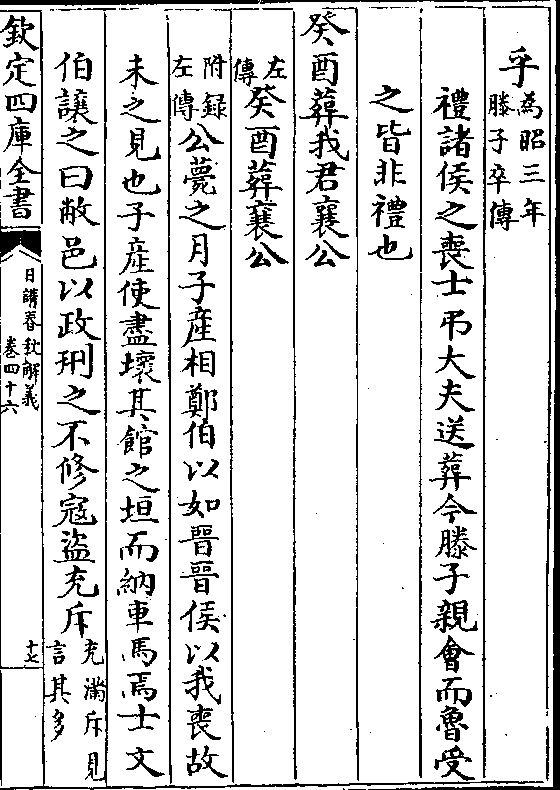 乎為昭三年滕子卒傳
禮諸侯之喪士弔大夫送葬今滕子親會而魯受
之皆非禮也
癸酉葬我君襄公
左傳癸酉葬襄公
附録左傳公薨之月子產相鄭伯以如晉晉侯以我喪故
未之見也子產使盡壞其館之垣而納車馬焉士文
伯讓之曰敝邑以政刑之不修寇盜充斥充滿斥見言其多
欽定四庫全書
日講春秋解義
卷四十六
十七